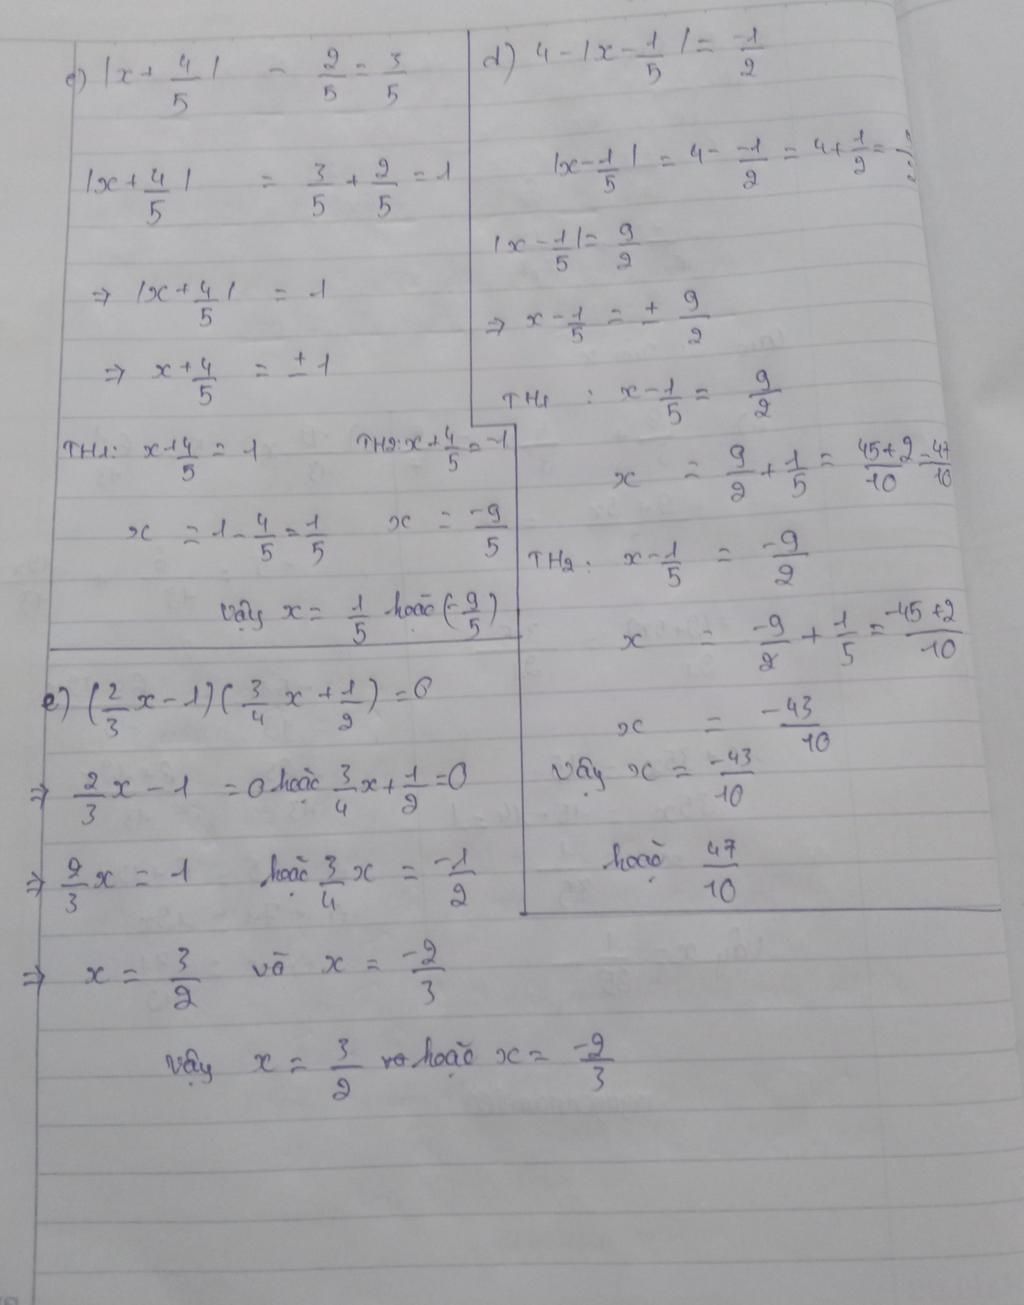 c) |x + 4/5| - 2/5 = 3/5
|x + 4/5| = 3/5 + 2/5 = 1
⇒ |x + 4/5| = 1
⇒ x + 4/5 = ± 1
TH1: x + 4/5 = 1 TH2: x + 4/5 = -1
x = 1 - 4/5 = 1/5 x = -9/5
Vậy x = 1/5 hoặc (-9/5)
d) 4 - |x - 1/5| = -1/2
|x - 1/5| = 4 - -1/2 = 4 + 1/2 =
|x - 1/5| = 9/2
⇒ x - 1/5 = ± 9/2
TH1 : x - 1/5 = 9/2
x = 9/2 + 1/5 = 45+2/10 = 47/10
TH2 : x - 1/5 = -9/2
x = -9/2 + 1/5 = -45+2/10
x = -43/10
Vậy x = -43/10
hoặc 47/10
e) (2/3 x - 1)(3/4 x + 1/2) = 0
⇒ 2/3 x - 1 = 0 hoặc 3/4 x + 1/2 = 0
⇒ 2/3 x = 1 hoặc 3/4 x = -1/2
⇒ x = 3/2 và x = -2/3
Vậy x = 3/2 hoặc x = -2/3